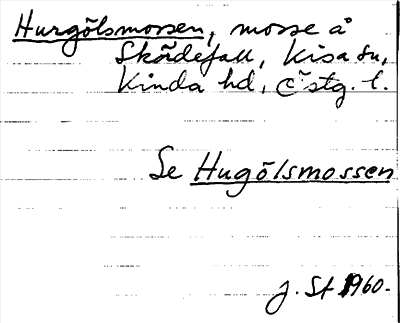 Hurgölsmossen, mosse å
Skördefall, Kisa sn,
Kinda hd, Östg. l.
Se Hugölsmossen
J. St 1960.